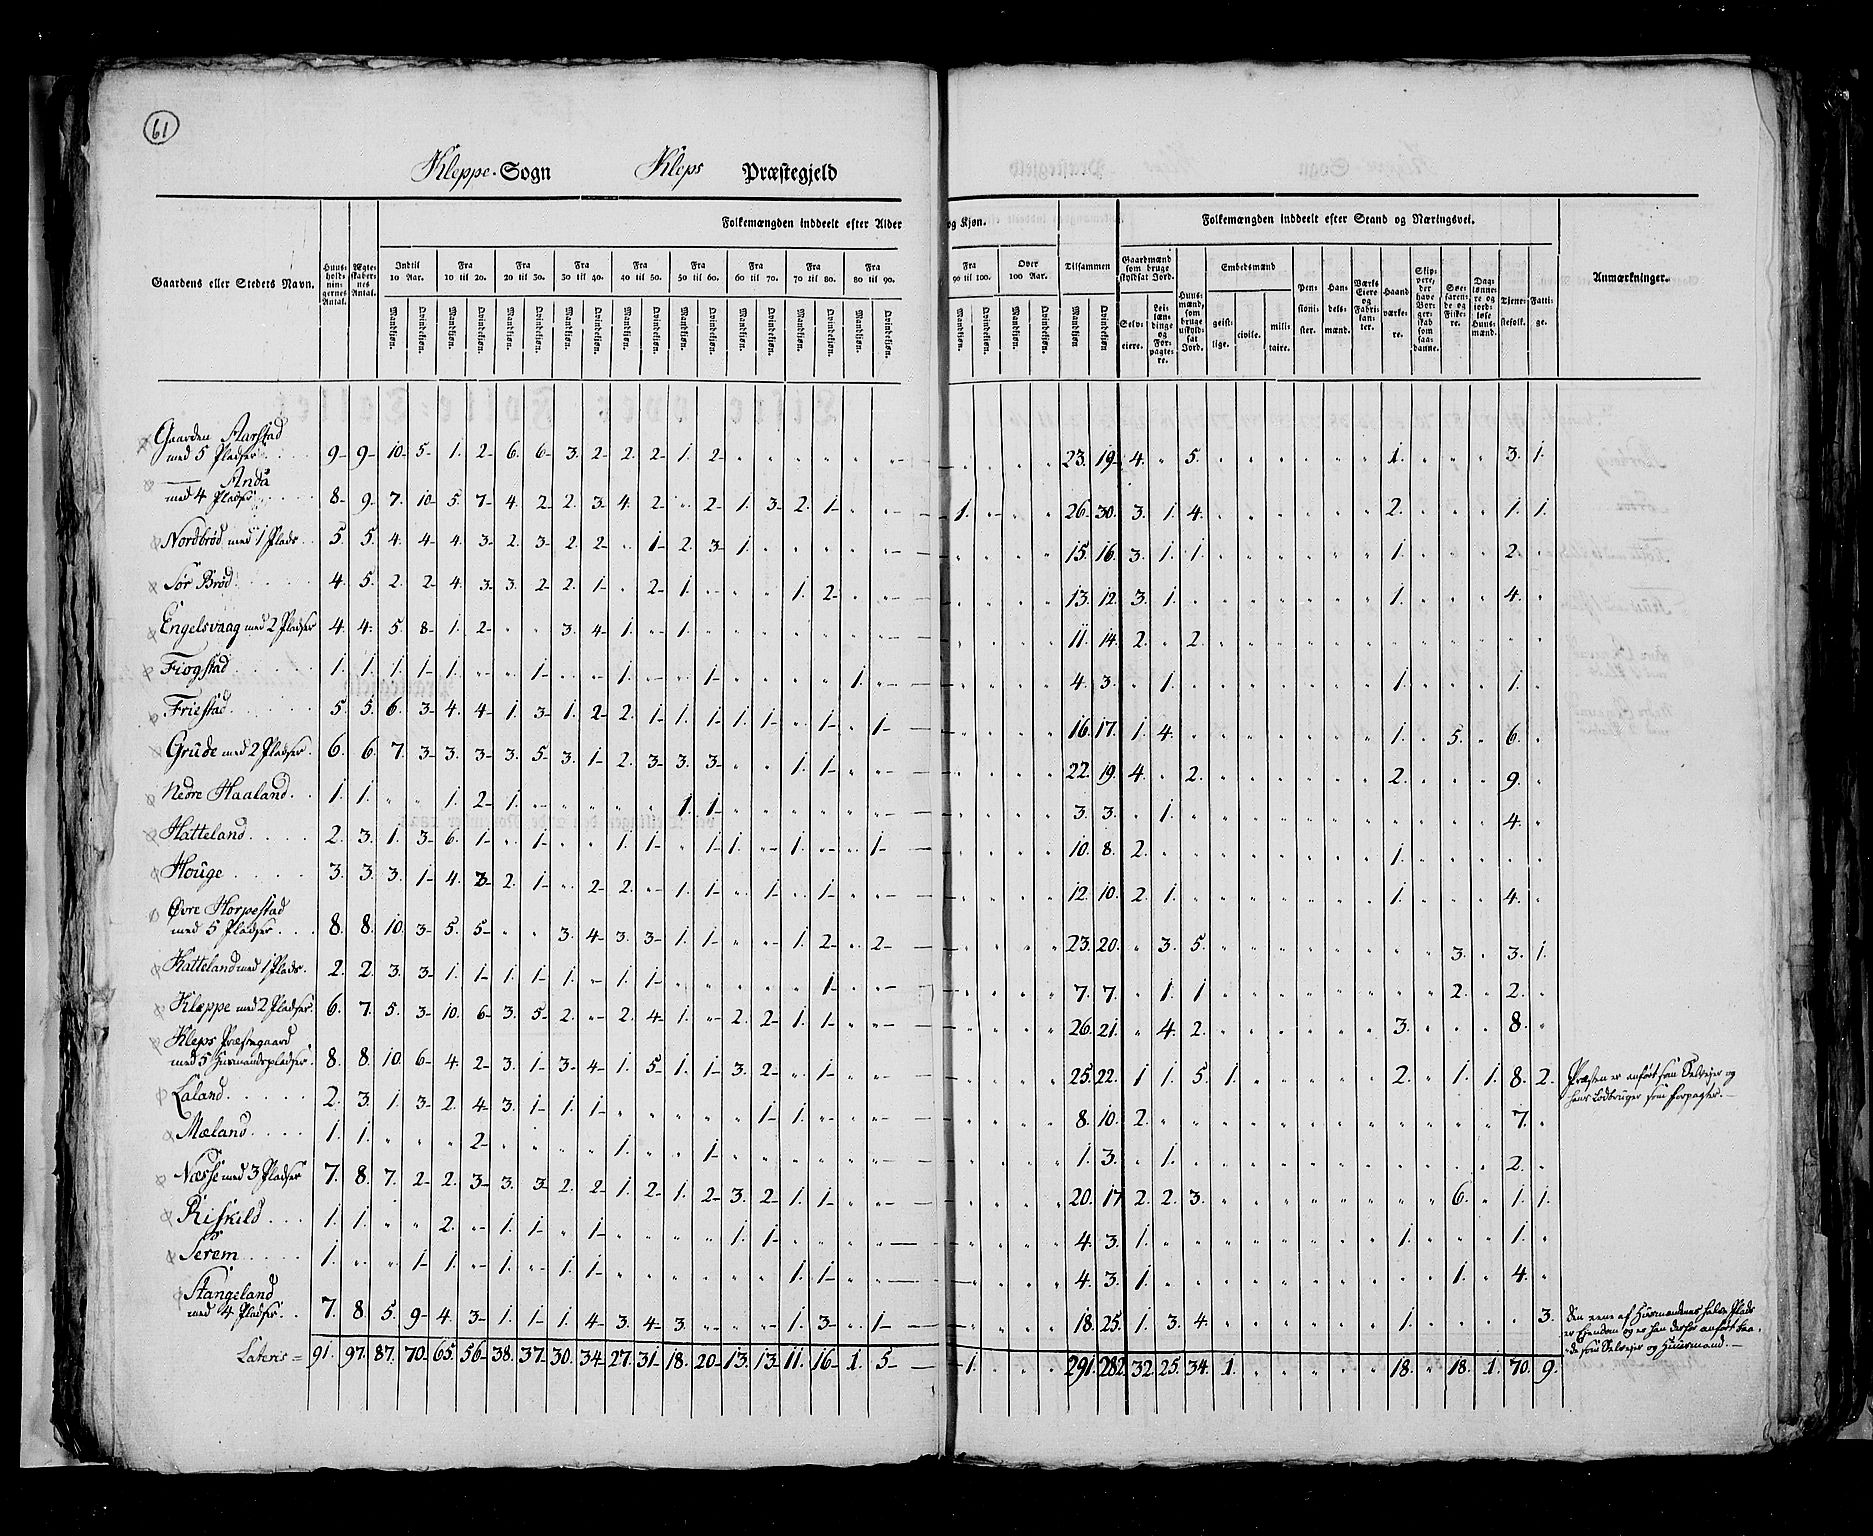 61
Kleppe Sogn Kleps Præstegjeld
Folkemængden inddeelt efter Alder og Kjøn.
Folkemængden inddeelt efter Stand og Næringsvei.
Gaardens eller Stedets Navn.
Huusholdningernes Antal.
Ægteskabernes Antal.
Indtil 10 Aar. Fra 10 til 20. Fra 20 til 30. Fra 30 til 40. Fra 40 til 50. Fra 50 til 60. Fra 60 til 70. Fra 70 til 80. Fra 80 til 90. Fra 90 til 100. Over 100 Aar. Tilsammen
Mandkjøn. Qvindekjøn.
Gaardmænd som bruge skyldsat Jord.
Selveiere. Leilændinge og Forpagtere.
Huusmænd, som bruge uskyldsat Jord.
Embedsmænd
geistlige. civile. militaire.
Pensionister. Handelsmænd. Værks Eiere og Fabrikanter. Haandværkere. Skippere, der have Borgerskab som saadanne. Søefarende og Fiskere. Daglønnere og jordløse Huusmænd. Tjenestefolk. Fattige.
Anmærkninger.
Gaarden Aarstad
med 5 Pladser 9 9 10 5 1 2 6 6 3 2 2 2 1 2 23 19 4 5 1 3 1
— Anda
med 4 Pladser 8 9 7 10 5 7 4 2 2 3 4 2 2 1 3 2 1 1 26 30 3 1 4 2 1 1
Nordbrød med 1 Plads 5 5 4 4 4 3 2 3 2 2 1 2 3 1 15 16 3 1 1 1 2
Sør Brød 4 5 2 2 4 3 3 2 2 1 2 1 1 2 13 12 3 1 1 4
Engelsvaag med 2 Pladser 4 4 5 8 1 2 3 4 1 1 11 14 2 2
Fiogstad 1 1 1 1 1 1 1 1 1 4 3 1 1 1
Friestad 5 5 6 3 4 4 1 3 1 2 2 1 1 1 1 1 1 1 16 17 1 4 1 5 6
Grude med 2 Pladser 6 6 7 3 3 3 3 5 3 1 2 3 3 3 1 1 22 19 4 2 2 9
Nedre Haaland 1 1 1 2 1 1 1 3 3 1 4
Hatteland 2 3 1 3 6 1 1 1 1 1 1 1 1 10 8 2 1
Houge 3 3 3 1 4 3 2 1 2 2 1 1 1 1 12 10 2 1 1 4
Øvre Horpestad
med 5 Pladser 8 8 10 3 5 5 3 4 3 3 1 1 1 2 2 23 20 3 5 3 3 1
Katteland med 1 Plads 2 2 3 3 1 1 1 1 1 1 1 1 7 7 1 1 2 2
Klæppe med 2 Pladser 6 7 5 3 10 6 3 5 2 2 4 1 2 2 1 1 26 21 4 2 3 8
Kleps Præstegaard
med 5 Huusmandspladser 8 8 10 6 4 2 3 1 3 4 1 5 1 1 3 2 1 25 22 1 1 5 1 2 1 1 8 2 Præsten er anført som Selveier og
hans Lodbruger som Forpagter.
Laland 2 3 1 3 2 4 3 1 1 1 1 1 8 10 2 7
Mæland 1 1 2 1 1 1 3 1 2
Næsse med 3 Pladser 7 8 7 2 2 3 3 3 2 2 1 2 1 2 3 2 1 1 20 17 2 2 3 6 1 1
Riskild 1 1 2 1 1 1 1 1 4 3 1 1 1
Serem 1 1 1 1 1 1 1 1 4 3 1 1 4
Stangeland
med 4 Pladser 7 8 5 9 4 3 1 1 1 4 3 4 3 1 3 1 18 25 1 3 4 1 3 Den eene af Huusmændenes halve Plads
er Ejendom og er han derfor anført baa-
de som Selveier og Huusmand.
Lateris = 91 97 87 70 65 56 38 37 30 34 27 31 18 20 13 13 11 16 1 5 1 291 282 32 25 34 1 18 18 1 70 9